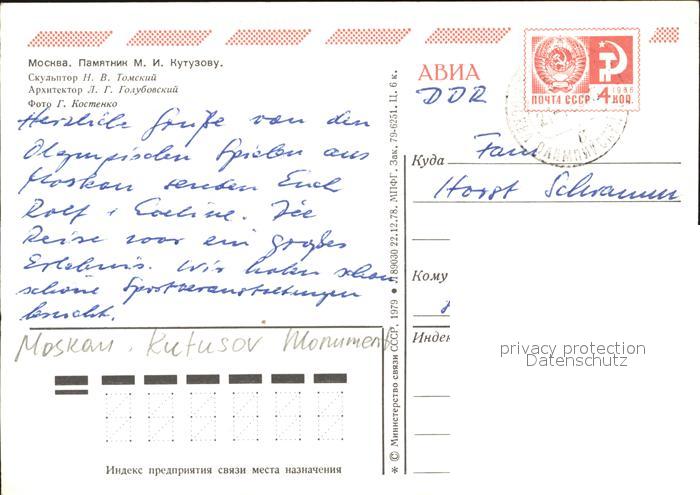 Москва. Памятник М. И. Кутузову.
Скульптор Н. В. Томский
Архитектор Л. Г. Голубовский
Фото Г. Костенко
Herzliche Grüße von den
Olympischen Spielen aus
Moskau senden Euch
Rolf +
Reise war ein großes
Erlebnis. Wir haben schon
schöne Sportveranstaltungen
besucht.
Moskau. Kutusov Monument
Индекс предприятия связи места назначения
* © Министерство связи СССР, 1979 • Л 89030 22.12.78. МПФГ. Зак. 79-6251. Ц. 6 к.
АВИА
DDR
ПОЧТА СССР 4 КОП.
1966
Куда Fam
Horst Schramm
Кому
Индек
privacy protection
Datenschutz